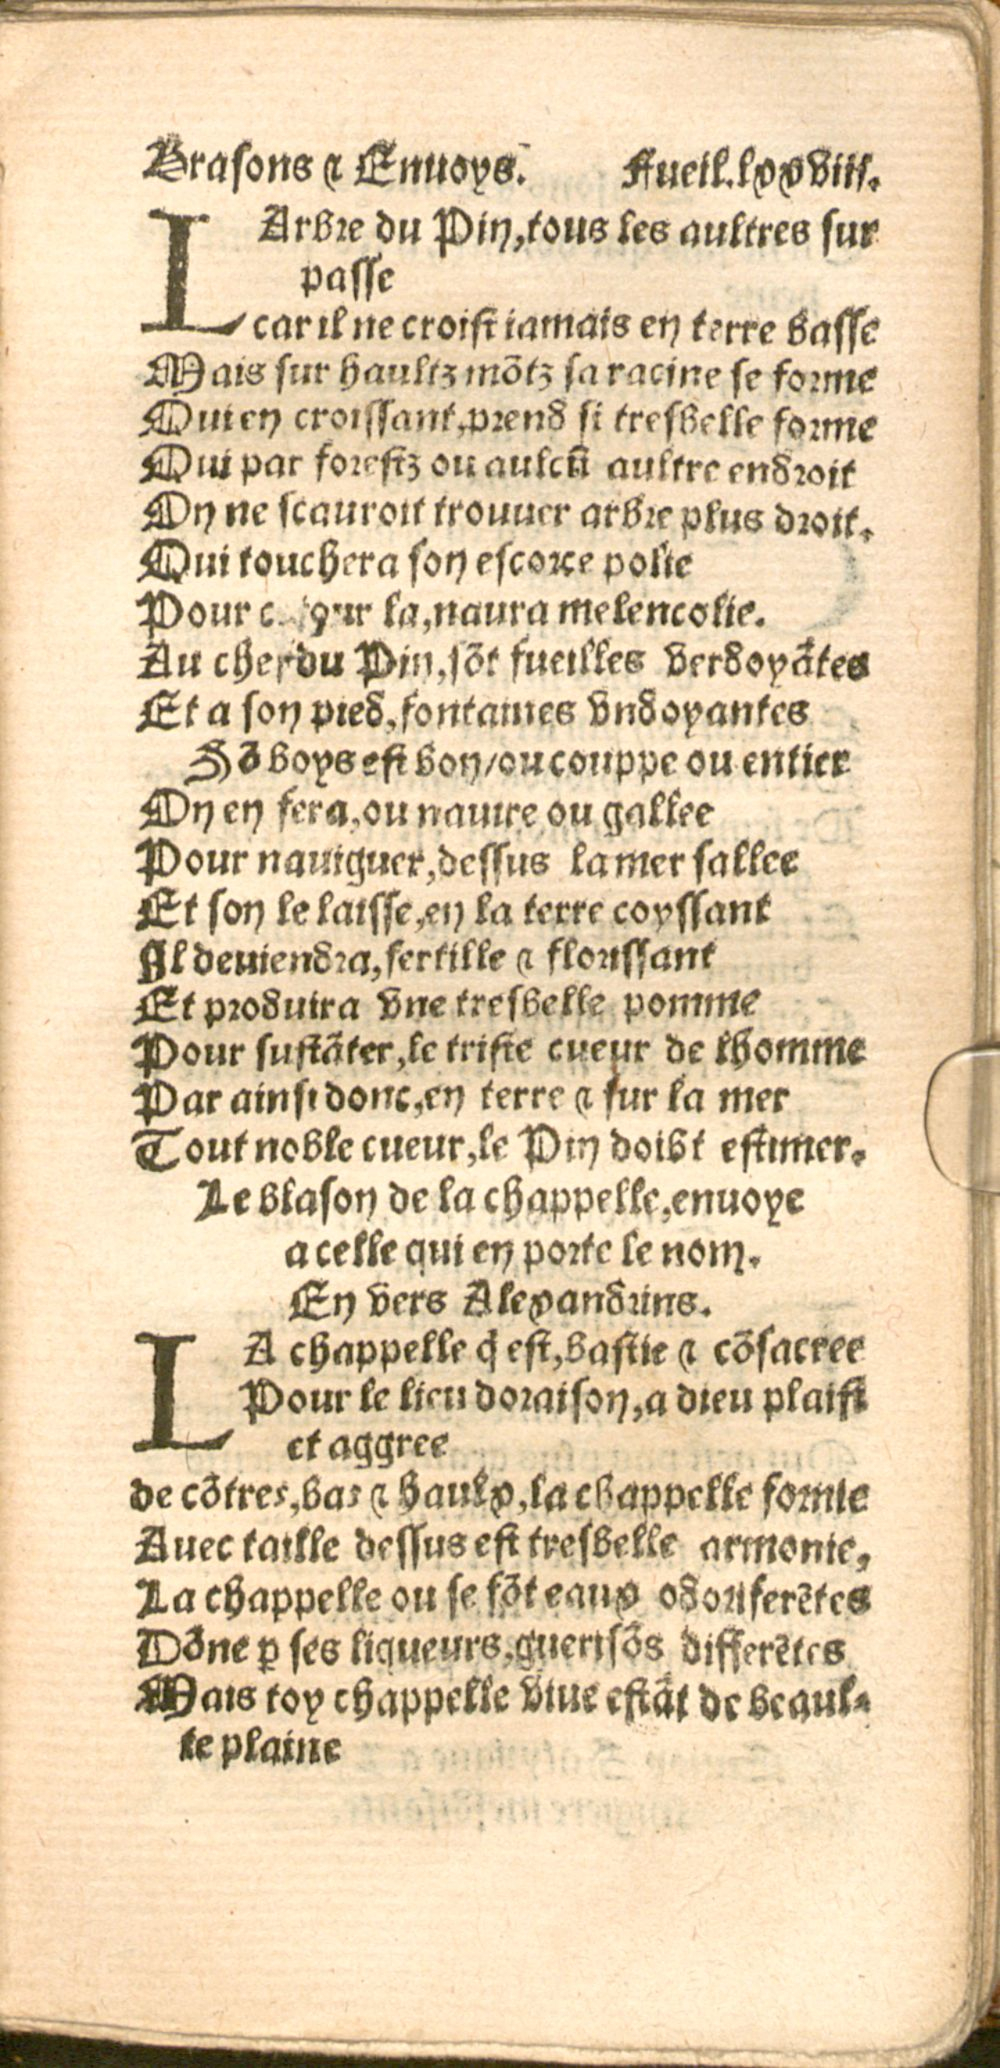 Brasons ⁊ Enuoys. Fueil.lxxviii.
LArbre du Pin,tous les aultres sur
passe
car il ne croist iamais en terre basse
Mais sur haultz mõtz sa racine se forme
Qui en croissant,prend si tresbelle forme
Qui par forestz ou aulcũ aultre endroit
On ne scauroit trouuer arbre plus droit.
Qui touchera son escorce polie
Pour la,naura melencolie.
Au chef du Pin,sõt fueilles verdoyãtes
Et a son pied,fontaines vndoyantes
Sõ boys est bon/ou couppe ou entier
On en fera,ou nauire ou gallee
Pour nauiguer,dessus la mer sallee
Et son le laisse,en la terre coyssant
Il deuiendra,fertille ⁊ florissant
Et produira vne tresbelle pomme
Pour sustãter,le triste cueur de lhomme
Par ainsi donc,en terre ⁊ sur la mer
Tout noble cueur,le Pin doibt estimer.
Le blason de la chappelle,enuoye
a celle qui en porte le nom.
En vers Alexandrins.
LA chappelle q̃ est,bastie ⁊ cõsacree
Pour le lieu doraison,a dieu plaist
et aggree
de cõtres,bas ⁊ haulx,la chappelle fornie
Auec taille dessus est tresbelle armonie,
La chappelle ou se fõt eaux odoriferẽtes
Dõne ꝑ ses liqueurs,guerisõs differẽtes
Mais toy chappelle viue estãt de beaul-
te plaine